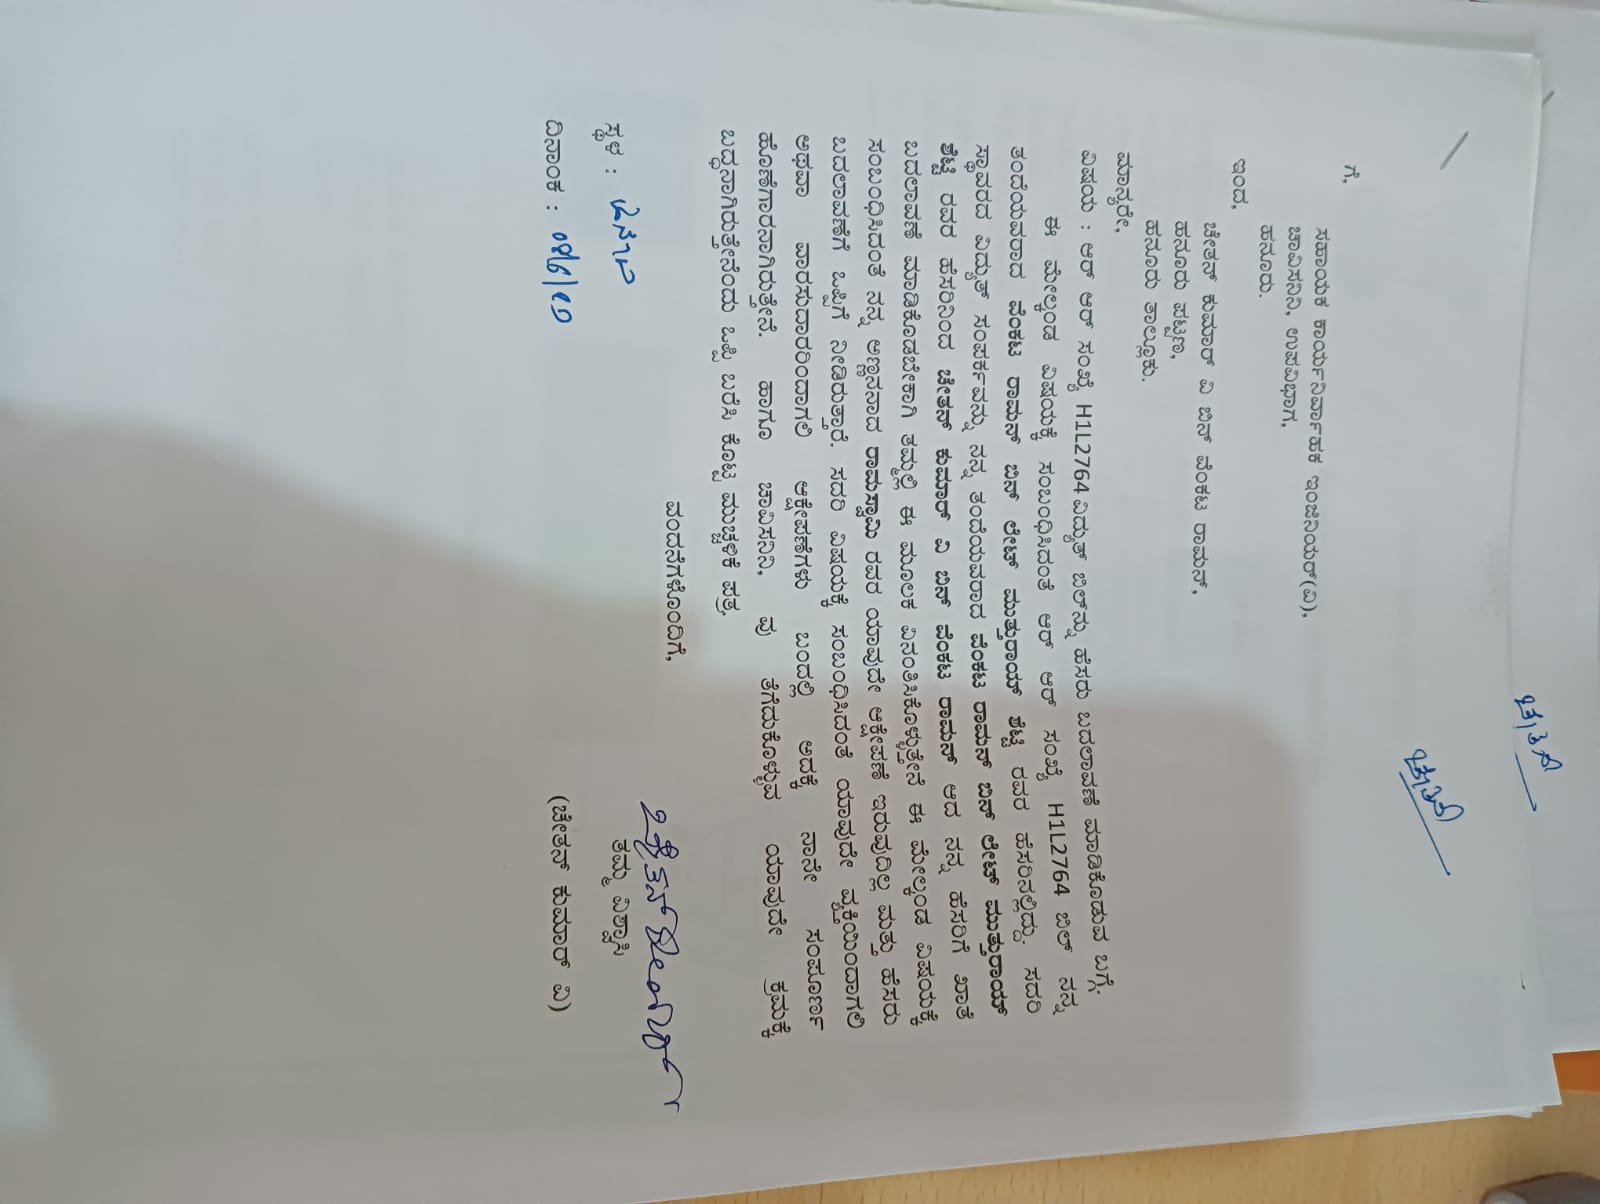 ಗೆ,
ಸಹಾಯಕ ಕಾರ್ಯನಿರ್ವಾಹಕ ಇಂಜಿನಿಯರ್(ವಿ).
ಚಾವಿಸನಿನಿ, ಉಪವಿಭಾಗ,
ಹನೂರು.
ಇಂದ,
ಚೇತನ್ ಕುಮಾರ್ ವಿ ಬಿನ್ ವೆಂಕಟ ರಾಮನ್,
ಹನೂರು ಪಟ್ಟಣ,
ಹನೂರು ತಾಲ್ಲೂಕು.
ಮಾನ್ಯರೇ,
ವಿಷಯ : ಆರ್ ಆರ್ ಸಂಖ್ಯೆ H1L2764 ವಿದ್ಯುತ್ ಬಿಲ್‌ನ್ನು ಹೆಸರು ಬದಲಾವಣೆ ಮಾಡಿಕೊಡುವ ಬಗ್ಗೆ.
ಈ ಮೇಲ್ಕಂಡ ವಿಷಯಕ್ಕೆ ಸಂಬಂಧಿಸಿದಂತೆ ಆರ್ ಆರ್ ಸಂಖ್ಯೆ H1L2764 ಬಿಲ್ ನನ್ನ
ತಂದೆಯವರಾದ ವೆಂಕಟ ರಾಮನ್ ಬಿನ್ ಲೇಟ್ ಮುತ್ತುರಾಯ್ ಶೆಟ್ಟಿ ರವರ ಹೆಸರಿನಲ್ಲಿದ್ದು. ಸದರಿ
ಸ್ಥಾವರದ ವಿದ್ಯುತ್ ಸಂಪರ್ಕವನ್ನು ನನ್ನ ತಂದೆಯವರಾದ ವೆಂಕಟ ರಾಮನ್ ಬಿನ್ ಲೇಟ್ ಮುತ್ತುರಾಯ್
ಶೆಟ್ಟಿ ರವರ ಹೆಸರಿನಿಂದ ಚೇತನ್ ಕುಮಾರ್ ವಿ ಬಿನ್ ವೆಂಕಟ ರಾಮನ್ ಆದ ನನ್ನ ಹೆಸರಿಗೆ ಖಾತೆ
ಬದಲಾವಣೆ ಮಾಡಿಕೊಡಬೇಕಾಗಿ ತಮ್ಮಲ್ಲಿ ಈ ಮೂಲಕ ವಿನಂತಿಸಿಕೊಳ್ಳುತ್ತೇನೆ ಈ ಮೇಲ್ಕಂಡ ವಿಷಯಕ್ಕೆ
ಸಂಬಂಧಿಸಿದಂತೆ ನನ್ನ ಅಣ್ಣನವಾದ ರಾಮಸ್ವಾಮಿ ರವರ ಯಾವುದೇ ಆಕ್ಷೇಪಣೆ ಇರುವುದಿಲ್ಲ ಮತ್ತು ಹೆಸರು
ಬದಲಾವಣೆಗೆ ಒಪ್ಪಿಗೆ ನೀಡಿರುತ್ತಾರೆ. ಸದರಿ ವಿಷಯಕ್ಕೆ ಸಂಬಂಧಿಸಿದಂತೆ ಯಾವುದೇ ವ್ಯಕ್ತಿಯಿಂದಾಗಲಿ
ಅಥವಾ ವಾರಸುದಾರರಿಂದಾಗಲಿ ಆಕ್ಷೇಪಣೆಗಳು ಬಂದಲ್ಲಿ ಅದಕ್ಕೆ ನಾನೇ ಸಂಪೂರ್ಣ
ಹೊಣೆಗಾರನಾಗಿರುತ್ತೇನೆ. ಹಾಗೂ ಚಾವಿಸನಿನಿ, ವು ತೆಗೆದುಕೊಳ್ಳುವ ಯಾವುದೇ ಕ್ರಮಕ್ಕೆ
ಬದ್ಧನಾಗಿರುತ್ತೇನೆಂದು ಒಪ್ಪಿ ಬರೆಸಿ ಕೊಟ್ಟ ಮುಚ್ಚಳಿಕೆ ಪತ್ರ.
ವಂದನೆಗಳೊಂದಿಗೆ,
ಸ್ಥಳ :
ತಮ್ಮ ವಿಶ್ವಾಸಿ
ದಿನಾಂಕ :
(ಚೇತನ್ ಕುಮಾರ್ ವಿ)